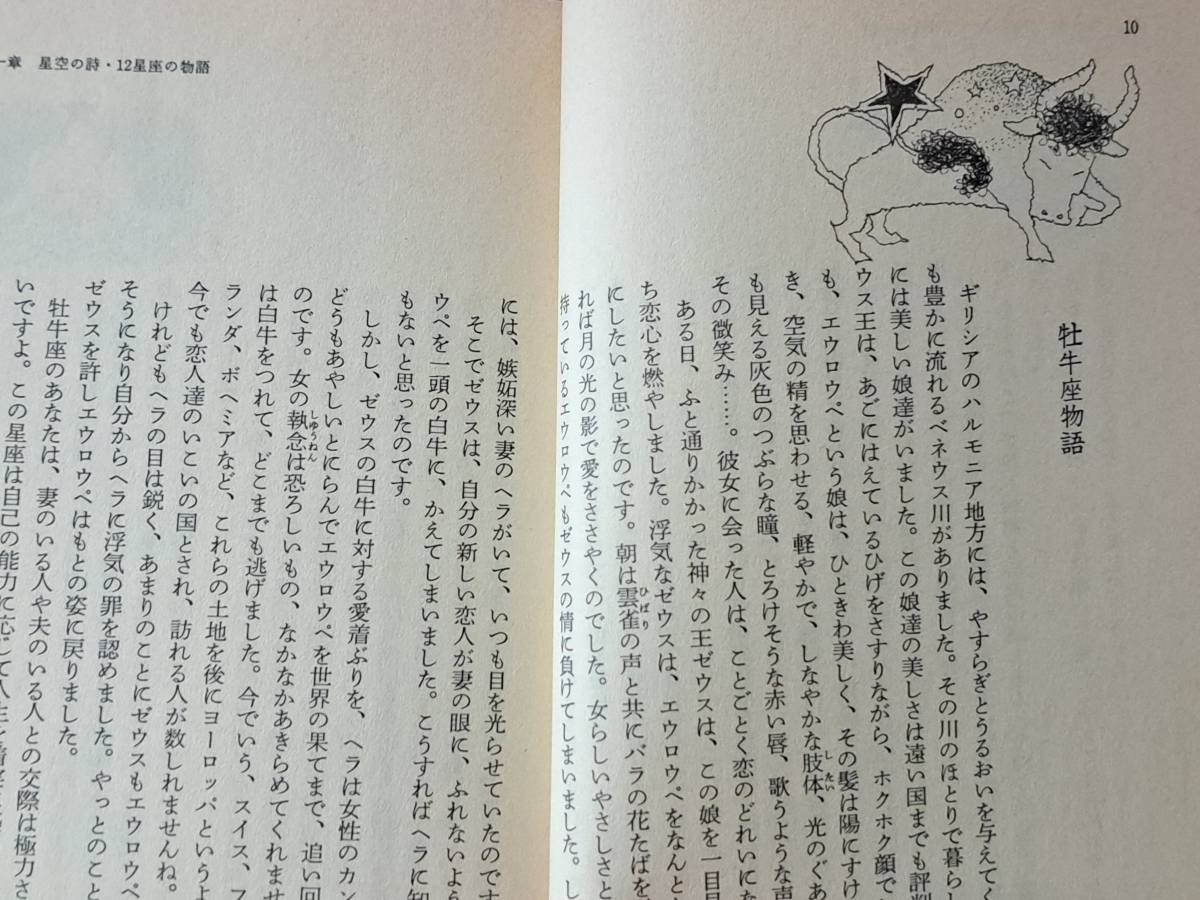 10
牡牛座物語
ギリシアのハルモニア地方には、やすらぎとうるおいを与えてく
も豊かに流れるベネウス川がありました。その川のほとりで暮らし
には美しい娘達がいました。この娘達の美しさは遠い国までも評判
ウス王は、あごにはえているひげをさすりながら、ホクホク顔で
も、エウロペという娘は、ひときわ美しく、その髪は陽にすけ
き、空気の精を思わせる、軽やかで、しなやかな肢体、光のぐあ
したい
も見える灰色のつぶらな瞳、とろけそうな赤い唇、歌うような声
その微笑み……。彼女に会った人は、ことごとく恋のどれいにな
ある日、ふと通りかかった神々の王ゼウスは、この娘を一目
ち恋心を燃やしました。浮気なゼウスは、エウロペをなんと
にしたいと思ったのです。朝は雲雀の声と共にバラの花たばを
ひばり
れば月の光の影で愛をささやくのでした。女らしいやさしさと
持っているエウロペもゼウスの情に負けてしまいました。し
一章 星空の詩・12星座の物語
には、嫉妬深い妻のヘラがいて、いつも目を光らせていたのです
そこでゼウスは、自分の新しい恋人が妻の眼に、ふれないよう
ウペを一頭の白牛に、かえてしまいました。こうすればヘラに知
もないと思ったのです。
しかし、ゼウスの白牛に対する愛着ぶりを、ヘラは女性のカン
どうもあやしいとにらんでエウロペを世界の果てまで、追い回
のです。女の執念は恐ろしいもの、なかなかあきらめてくれませ
しゆうねん
は白牛をつれて、どこまでも逃げました。今でいう、スイス、フ
ランダ、ボヘミアなど、これらの土地を後にヨーロッパというよ
今でも恋人達のいこいの国とされ、訪れる人が数しれませんね。
けれどもヘラの目は鋭く、あまりのことにゼウスもエウロペ
そうになり自分からヘラに浮気の罪を認めました。やっとのこと
ゼウスを許しエウロペはもとの姿に戻りました。
牡牛座のあなたは、妻のいる人や夫のいる人との交際は極力さ
いですよ。この星座は自己の能力に応じて人生を